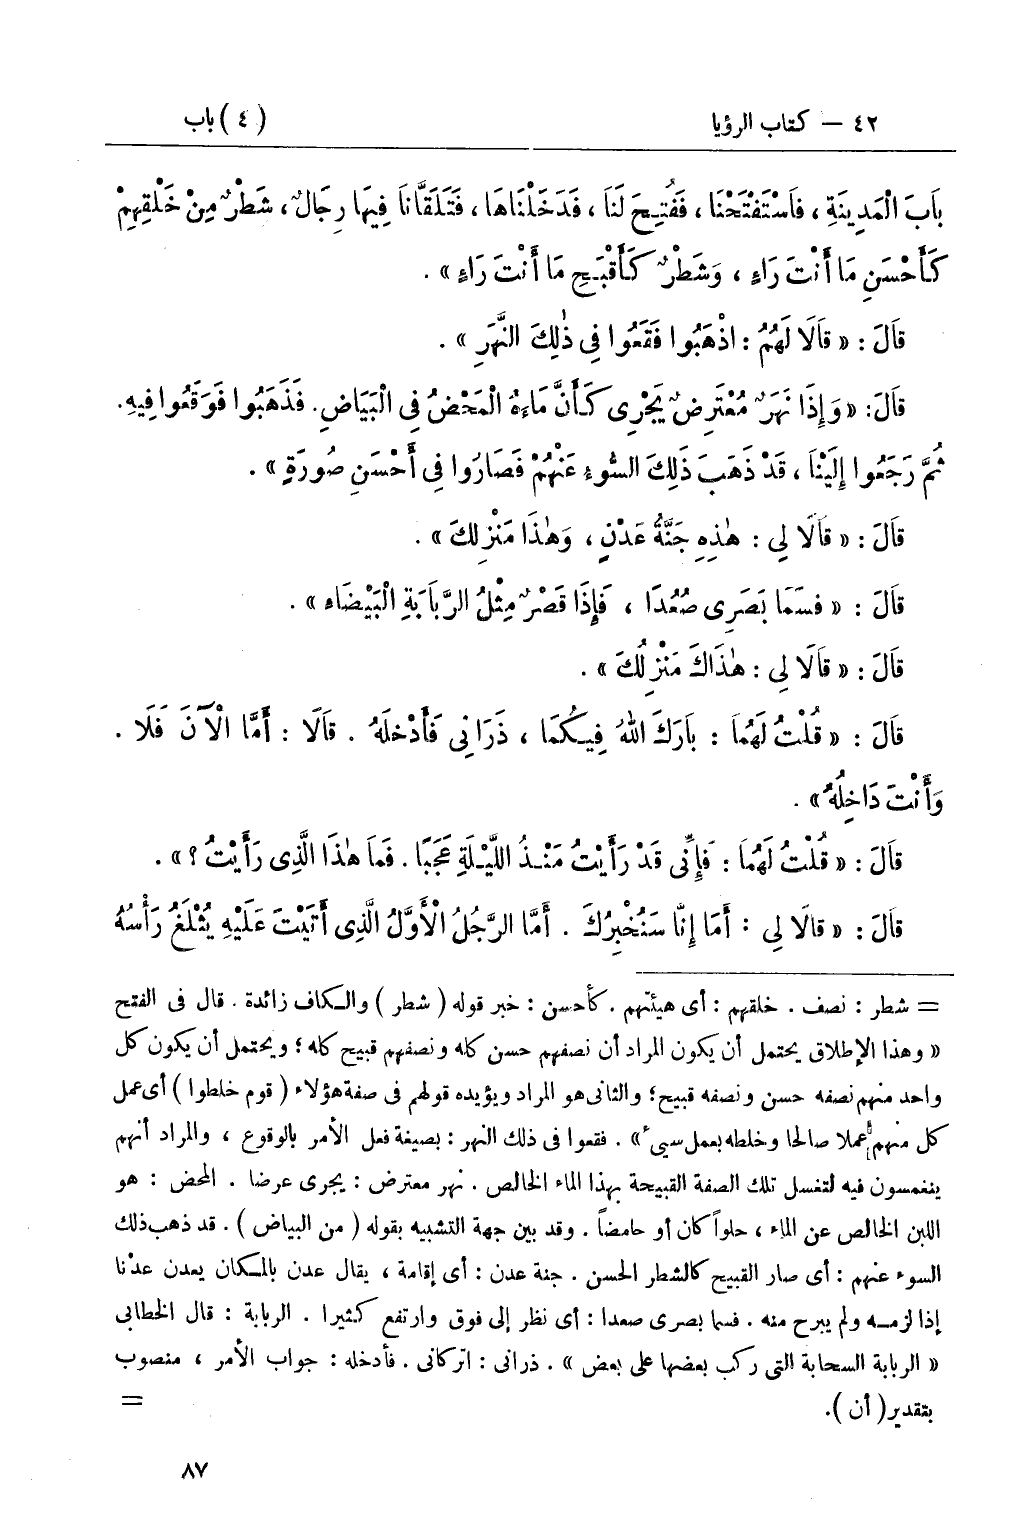 ٤٢ – كتاب الرؤيا (٤) باب
بَابَ الْمَدِينَةِ ، فَاسْتَفْتَحْنَا ، فَفُتِحَ لَنَا ، فَدَخَلْنَاهَا ، فَتَلَقَّانَا فِيهَا رِجَالٌ ، شَطْرٌ مِنْ خَلْقِهِمْ
كَأَحْسَنِ مَا أَنْتَ رَاءٍ ، وَشَطْرٌ كَأَقْبَحِ مَا أَنْتَ رَاءٍ » .
قَالَ : « قَالَا لَهُمُ : اذْهَبُوا فَقَعُوا فِى ذٰلِكَ النَّهَرِ » .
قَالَ: « وَإِذَا نَهَرٌ مُعْتَرِضٌ يَجْرِى كَأَنَّ مَاءَهُ الْمَحْضُ فِى الْبَيَاضِ. فَذَهَبُوا فَوَقَعُوا فِيهِ.
ثُمَّ رَجَعُوا إِلَيْنَا ، قَدْ ذَهَبَ ذَلِكَ السُّوءِ عَنْهُمْ فَصَارُوا فِى أَحْسَنِ صُورَةٍ » .
قَالَ : « قَالَا لِى : هٰذِهِ جَنَّةُ عَدْنٍ ، وَهٰذَا مَنْزِلكَ » .
قَالَ : « فَسَمَا بَصَرِى صُعُدًا ، فَإِذَا قَصْرٌ مِثْلُ الرَّبَابَةِ الْبَيْضَاءِ » .
قَالَ : « قَالَا لِى : هٰذَاكَ مَنْزِلُكَ » .
قَالَ : « قُلْتُ لَهُمَا : بَارَكَ اللهُ فِيكُمَا ، ذَرَانِى فَأَدْخلَهُ . قَالَا : أَمَّا الْآنَ فَلَا .
وَأَنْتَ دَاخِلُهُ » .
قَالَ : « قُلْتُ لَهُمَا : فَإِنِّى قَدْ رَأَيْتُ مَنْذُ اللَّيْلَةِ عَجَبًا . فَمَا هٰذَا الَّذِى رَأَيْتُ ؟ » .
قَالَ : « قَالَا لِى : أَمَا إِنَّا سَنُخْبِرُكَ . أَمَّا الرَّجُلُ الْأَوَّلُ الَّذِى أَتَيْتَ عَلَيْهِ يُثْلَغُ رَأْسُهُ
= شطر : نصف . خلقهم : أى هيئتهم . كأحسن : خبر قوله ( شطر ) والكاف زائدة . قال فى الفتح
« وهذا الإطلاق يحتمل أن يكون المراد أن نصفهم حسن كله ونصفهم قبيح كله ؛ ويحتمل أن يكون كل
واحد منهم نصفه حسن ونصفه قبيح؛ والثانى هو المراد ويؤيده قولهم فى صفة هؤلاء ( قوم خلطوا ) أى عمل
كل منهم عملا صالحا وخلطه بعمل سيىء » . فقعوا فى ذلك النهر : بصيغة فعل الأمر بالوقوع ، والمراد أنهم
ينغمسون فيه لتغسل تلك الصفة القبيحة بهذا الماء الخالص . نهر معترض : يجرى عرضا . المحض : هو
اللبن الخالص عن الماء ، حلواً كان أو حامضاً . وقد بين جهة التشبيه بقوله ( من البياض ) . قد ذهب ذلك
السوء عنهم : أى صار القبيح كالشطر الحسن . جنة عدن : أى إقامة ، يقال عدن بالمكان يعدن عدْنا
إذا لزمه ولم يبرح منه . فسما بصرى صعدا : أى نظر إلى فوق وارتفع كثيرا . الربابة : قال الخطابى
« الربابة السحابة التى ركب بعضها على بعض » . ذرانى : اتركانى . فأدخله : جواب الأمر ، منصوب
بتقدير ( أن ). =
٨٧